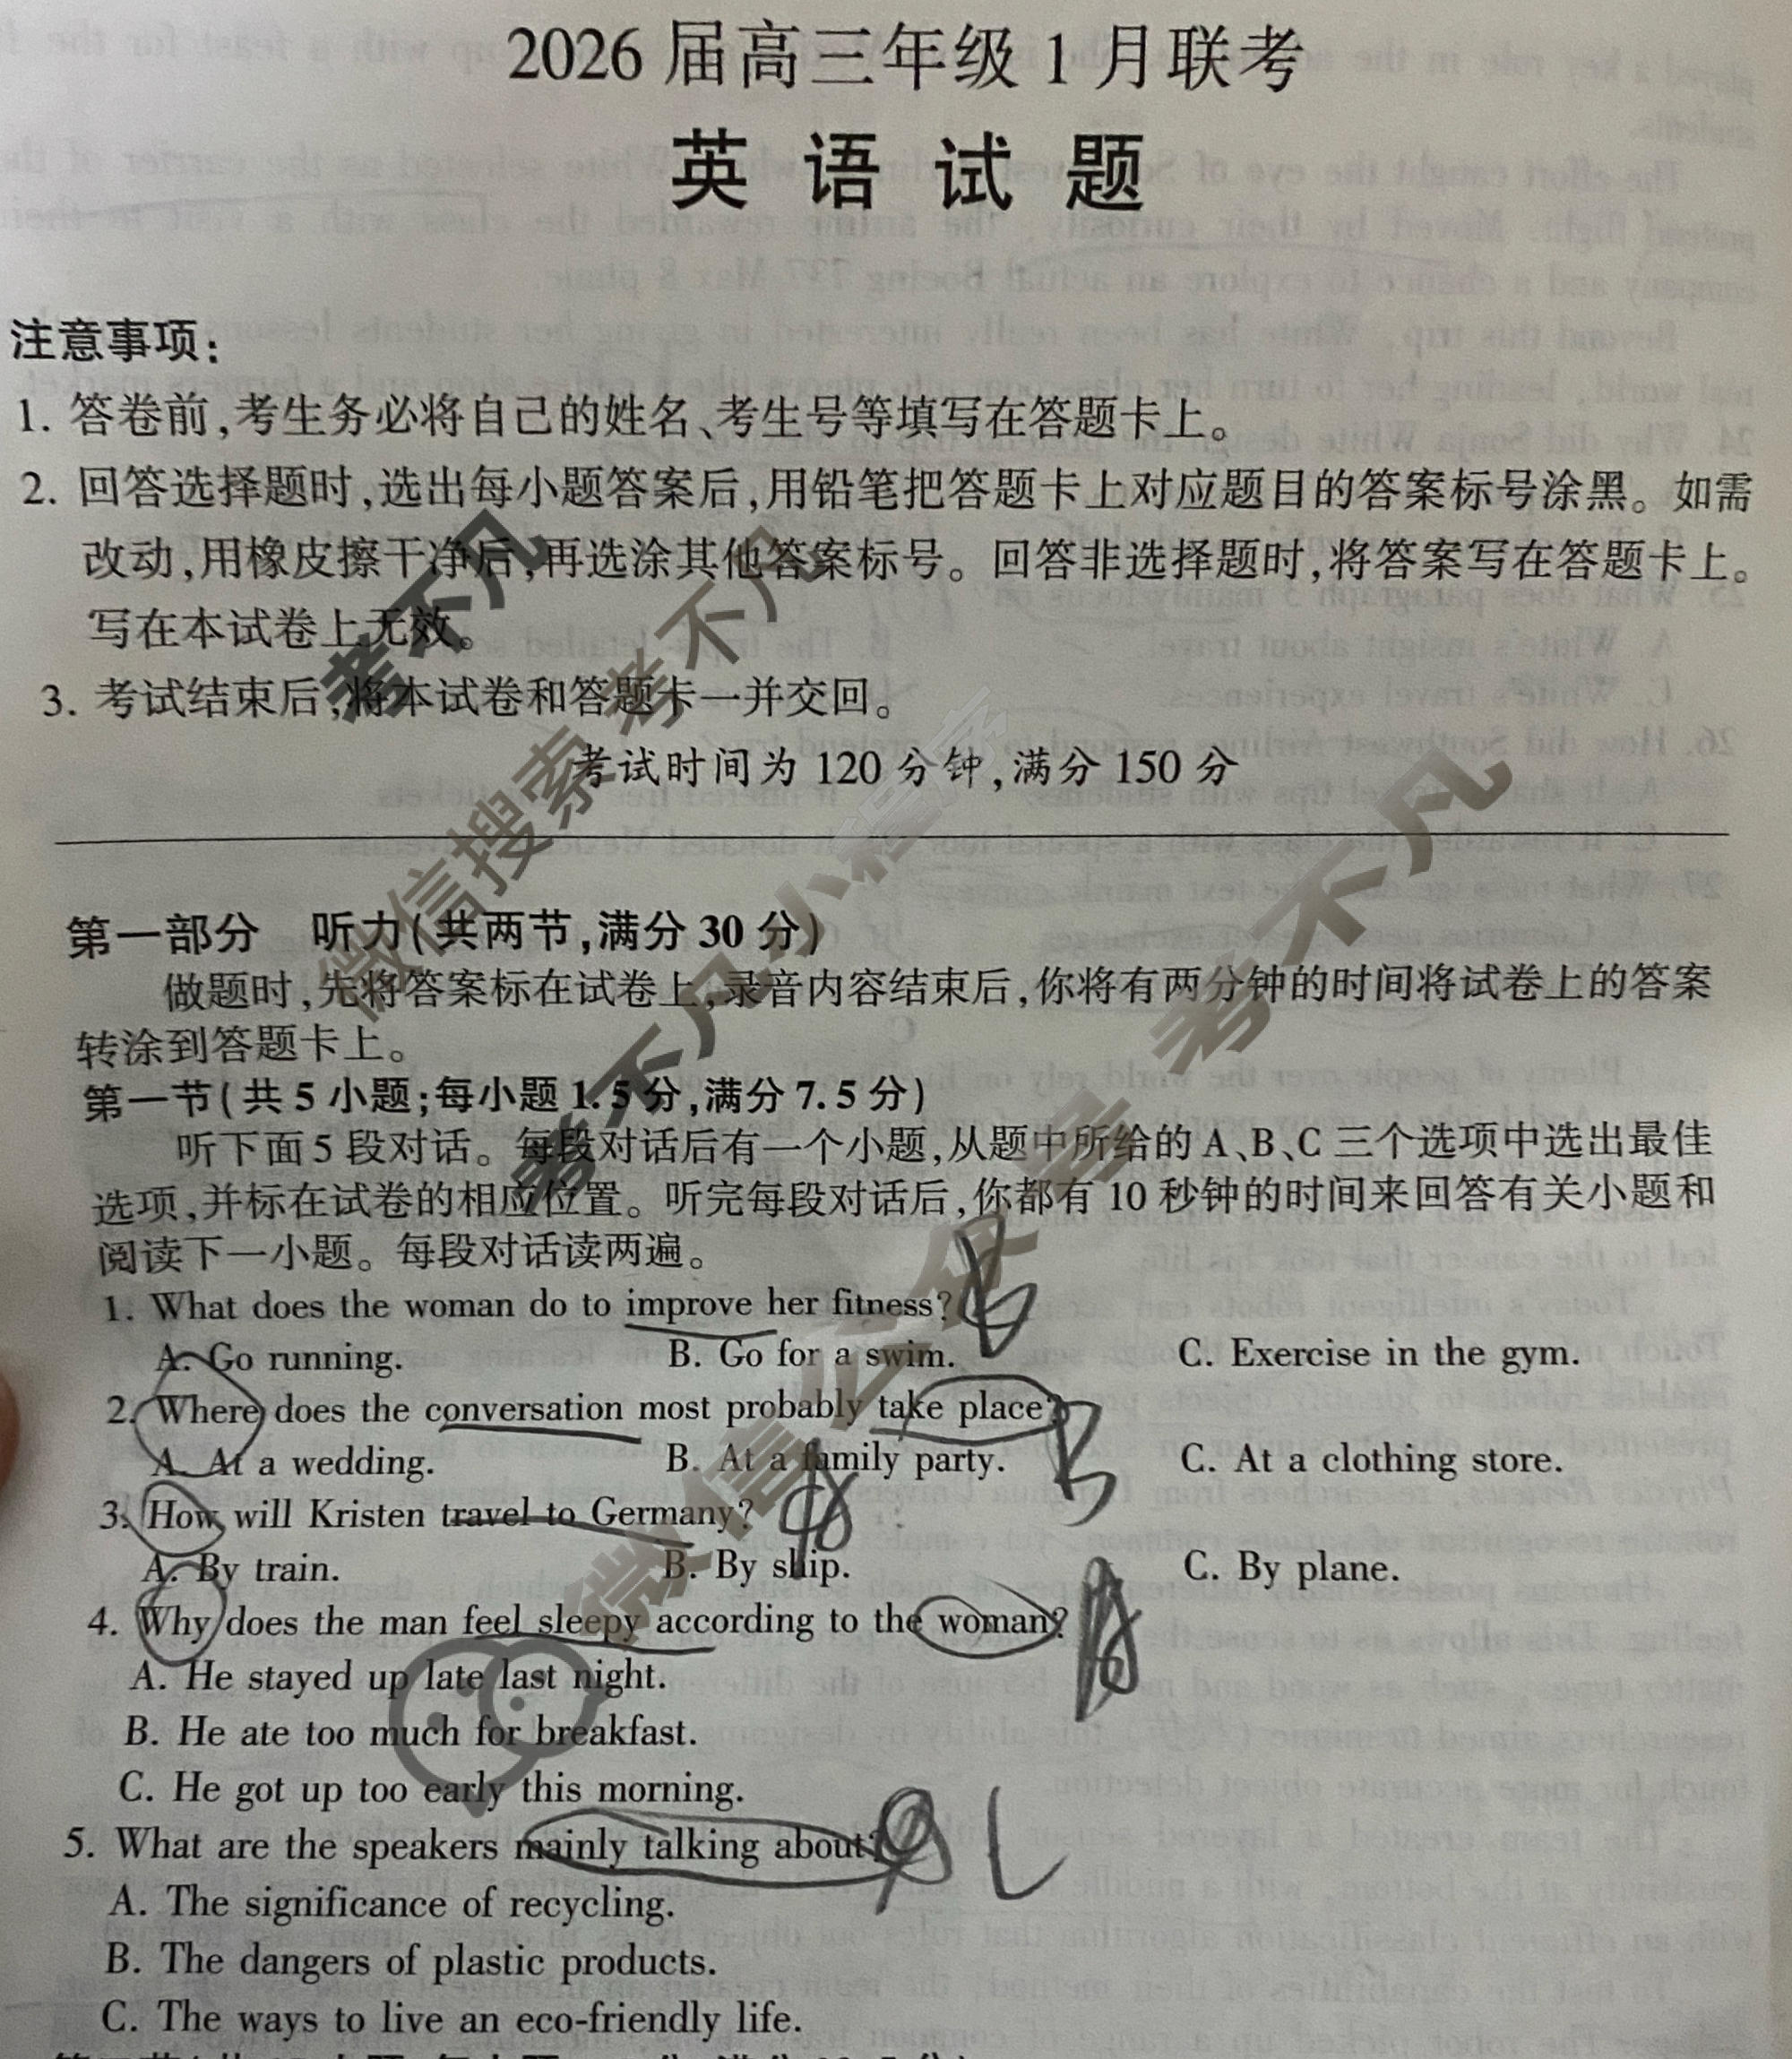 2026届高三年级1月联考
英语试题
注意事项:
1. 答卷前,考生务必将自己的姓名、考生号等填写在答题卡上。
2. 回答选择题时,选出每小题答案后,用铅笔把答题卡上对应题目的答案标号涂黑。如需
改动,用橡皮擦干净后,再选涂其他答案标号。回答非选择题时,将答案写在答题卡上。
写在本试卷上无效。
3. 考试结束后,将本试卷和答题卡一并交回。
考试时间为120分钟,满分150分
第一部分 听力(共两节,满分30分)
做题时,先将答案标在试卷上,录音内容结束后,你将有两分钟的时间将试卷上的答案
转涂到答题卡上。
第一节(共5小题;每小题1.5分,满分7.5分)
听下面5段对话。每段对话后有一个小题,从题中所给的A、B、C三个选项中选出最佳
选项,并标在试卷的相应位置。听完每段对话后,你都有10秒钟的时间来回答有关小题和
阅读下一小题。每段对话读两遍。
1. What does the woman do to improve her fitness?
A. Go running. B. Go for a swim. C. Exercise in the gym.
2. Where does the conversation most probably take place? B
A. At a wedding. B. At a family party. C. At a clothing store.
3. How will Kristen travel to Germany?
A. By train. B. By ship. C. By plane.
4. Why does the man feel sleepy according to the woman?
A. He stayed up late last night.
B. He ate too much for breakfast.
C. He got up too early this morning.
5. What are the speakers mainly talking about?
A. The significance of recycling.
B. The dangers of plastic products.
C. The ways to live an eco-friendly life.
考不凡
微信搜索 考不凡
考不凡小程序
微信公众号 考不凡